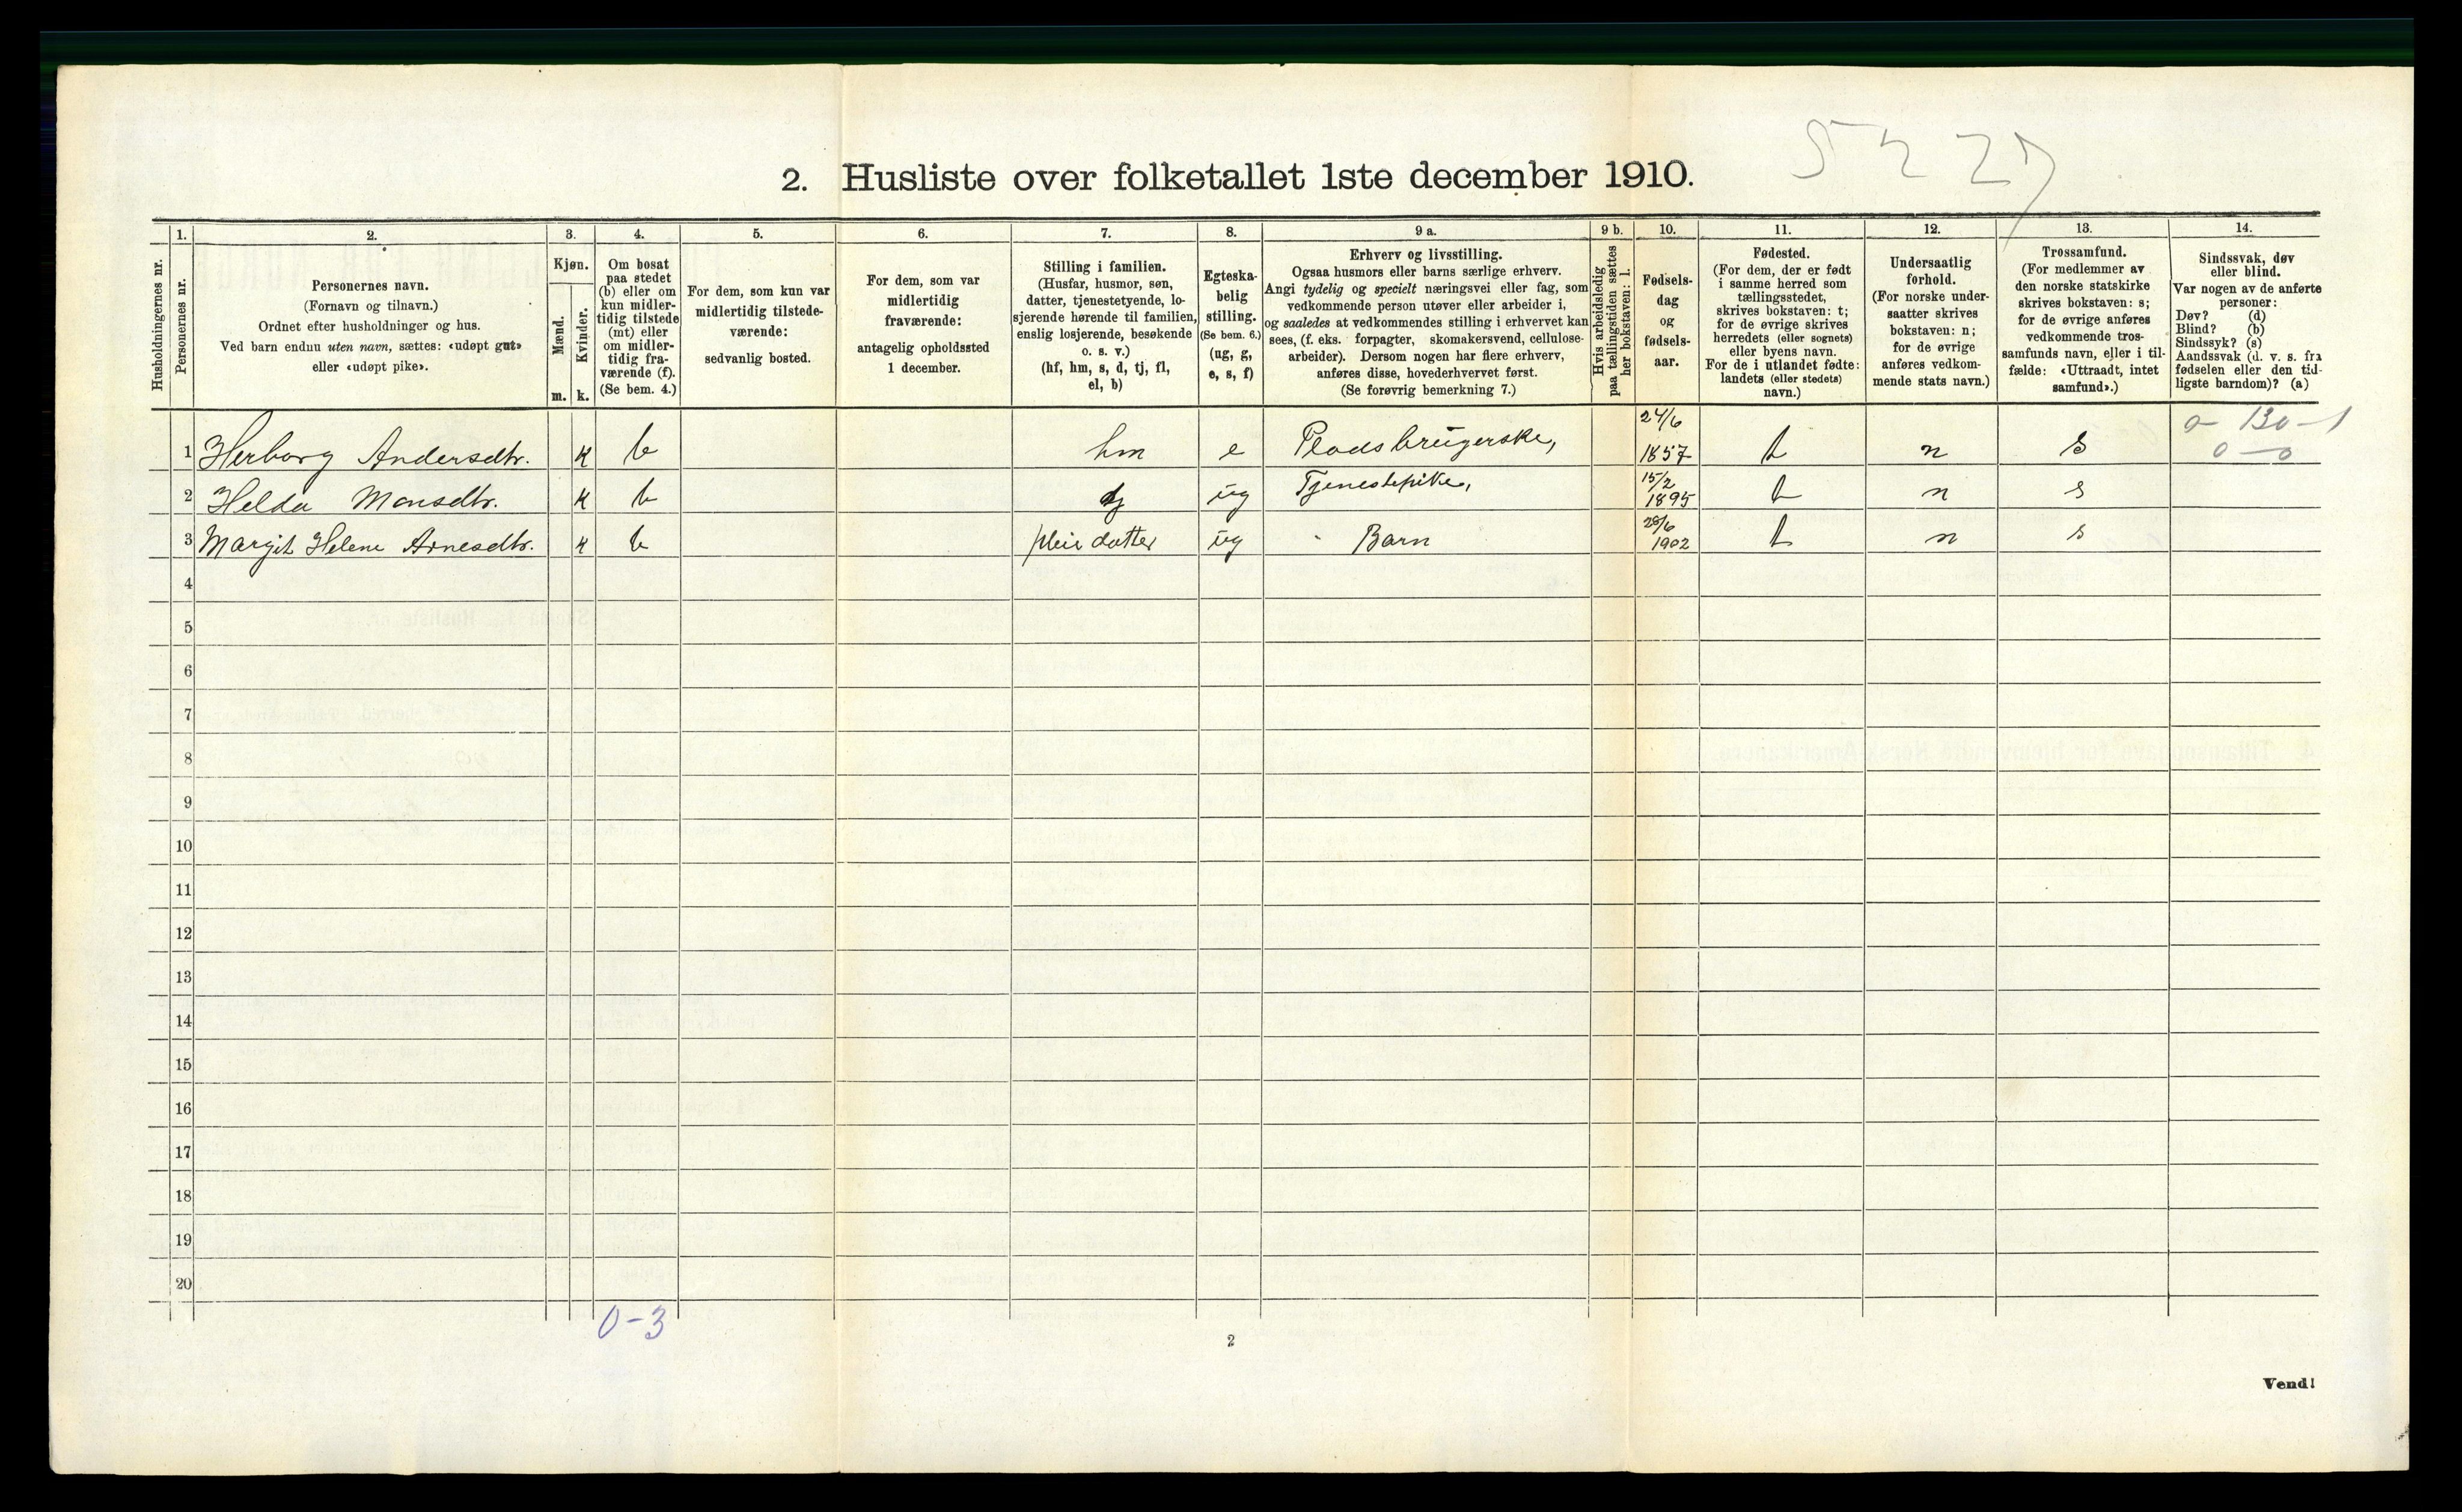 5227
2. Husliste over folketallet 1ste december 1910.
Husholdningernes nr.
1.
Personernes nr.
2.
Personernes navn.
(Fornavn og tilnavn.)
Ordnet efter husholdninger og hus.
Ved barn endnu uten navn, sættes: «udøpt gut»
eller «udøpt pike».
3.
Kjøn.
Mænd.
Kvinder.
m. k.
4.
Om bosat
paa stedet
(b) eller om
kun midler-
tidig tilstede
(mt) eller
om midler-
tidig fra-
værende (f).
(Se bem. 4.)
5.
For dem, som kun var
midlertidig tilstede-
værende:
sedvanlig bosted.
6.
For dem, som var
midlertidig
fraværende:
antagelig opholdssted
1 december.
7.
Stilling i familien.
(Husfar, husmor, søn,
datter, tjenestetyende, lo-
sjerende hørende til familien,
enslig losjerende, besøkende
o. s. v.)
(hf, hm, s, d, tj, fl,
el, b)
8.
Egteska-
belig
stilling.
(Se bem. 6.)
(ug, g,
e, s, f)
9 a.
Erhverv og livsstilling.
Ogsaa husmors eller barns særlige erhverv.
Angi tydelig og specielt næringsvei eller fag, som
vedkommende person utøver eller arbeider i,
og saaledes at vedkommendes stilling i erhvervet kan
sees, (f. eks. forpagter, skomakersvend, cellulose-
arbeider). Dersom nogen har flere erhverv,
anføres disse, hovederhvervet først.
(Se forøvrig bemerkning 7.)
9 b.
Hvis arbeidsledig
paa tællingstiden sættes
her bokstaven: l.
10.
Fødsels-
dag
og
fødsels-
aar.
11.
Fødested.
(For dem, der er født
i samme herred som
tællingsstedet,
skrives bokstaven: t;
for de øvrige skrives
herredets (eller sognets)
eller byens navn.
For de i utlandet fødte:
landets (eller stedets)
navn.)
12.
Undersaatlig
forhold.
(For norske under-
saatter skrives
bokstaven: n;
for de øvrige
anføres vedkom-
mende stats navn.)
13.
Trossamfund.
(For medlemmer av
den norske statskirke
skrives bokstaven: s;
for de øvrige anføres
vedkommende tros-
samfunds navn, eller i til-
fælde: «Uttraadt, intet
samfund».)
14.
Sindssvak, døv
eller blind.
Var nogen av de anførte
personer:
Døv? (d)
Blind? (b)
Sindssyk? (s)
Aandssvak (d. v. s. fra
fødselen eller den tid-
ligste barndom)? (a)
1 Herborg Andersdtr. k b hm e Pladsbrugerske, 24/6 1857 t n s 0-130-1
0-0
2 Helda Monsdtr. k b tj ug Tjenestepike, 15/2 1895 t n s
3 Margit Helene Arnesdtr. k b pleiedatter ug Barn 28/6 1902 t n s
4
5
6
7
8
9
10
11
12
13
14
15
16
17
18
19
20
0-3
2
Vend!